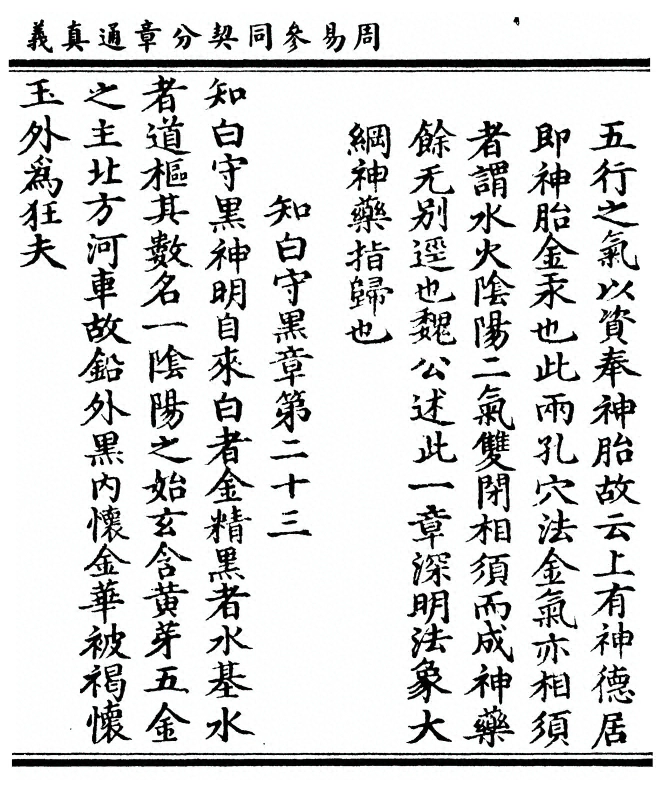 周易參同契分章通真義
五行之氣以資奉神胎故云上有神德居
即神胎金汞也此兩孔穴法金氣亦相須
者謂水火隂陽二氣雙閉相須而成神藥
餘无别逕也魏公述此一章深明法象大
綱神藥指歸也
知白守黑章第二十三
知白守黑神明自來白者金精黑者水基水
者道樞其數名一隂陽之始玄含黄芽五金
之主北方河車故鉛外黑内懷金華被褐懷
玉外爲狂夫